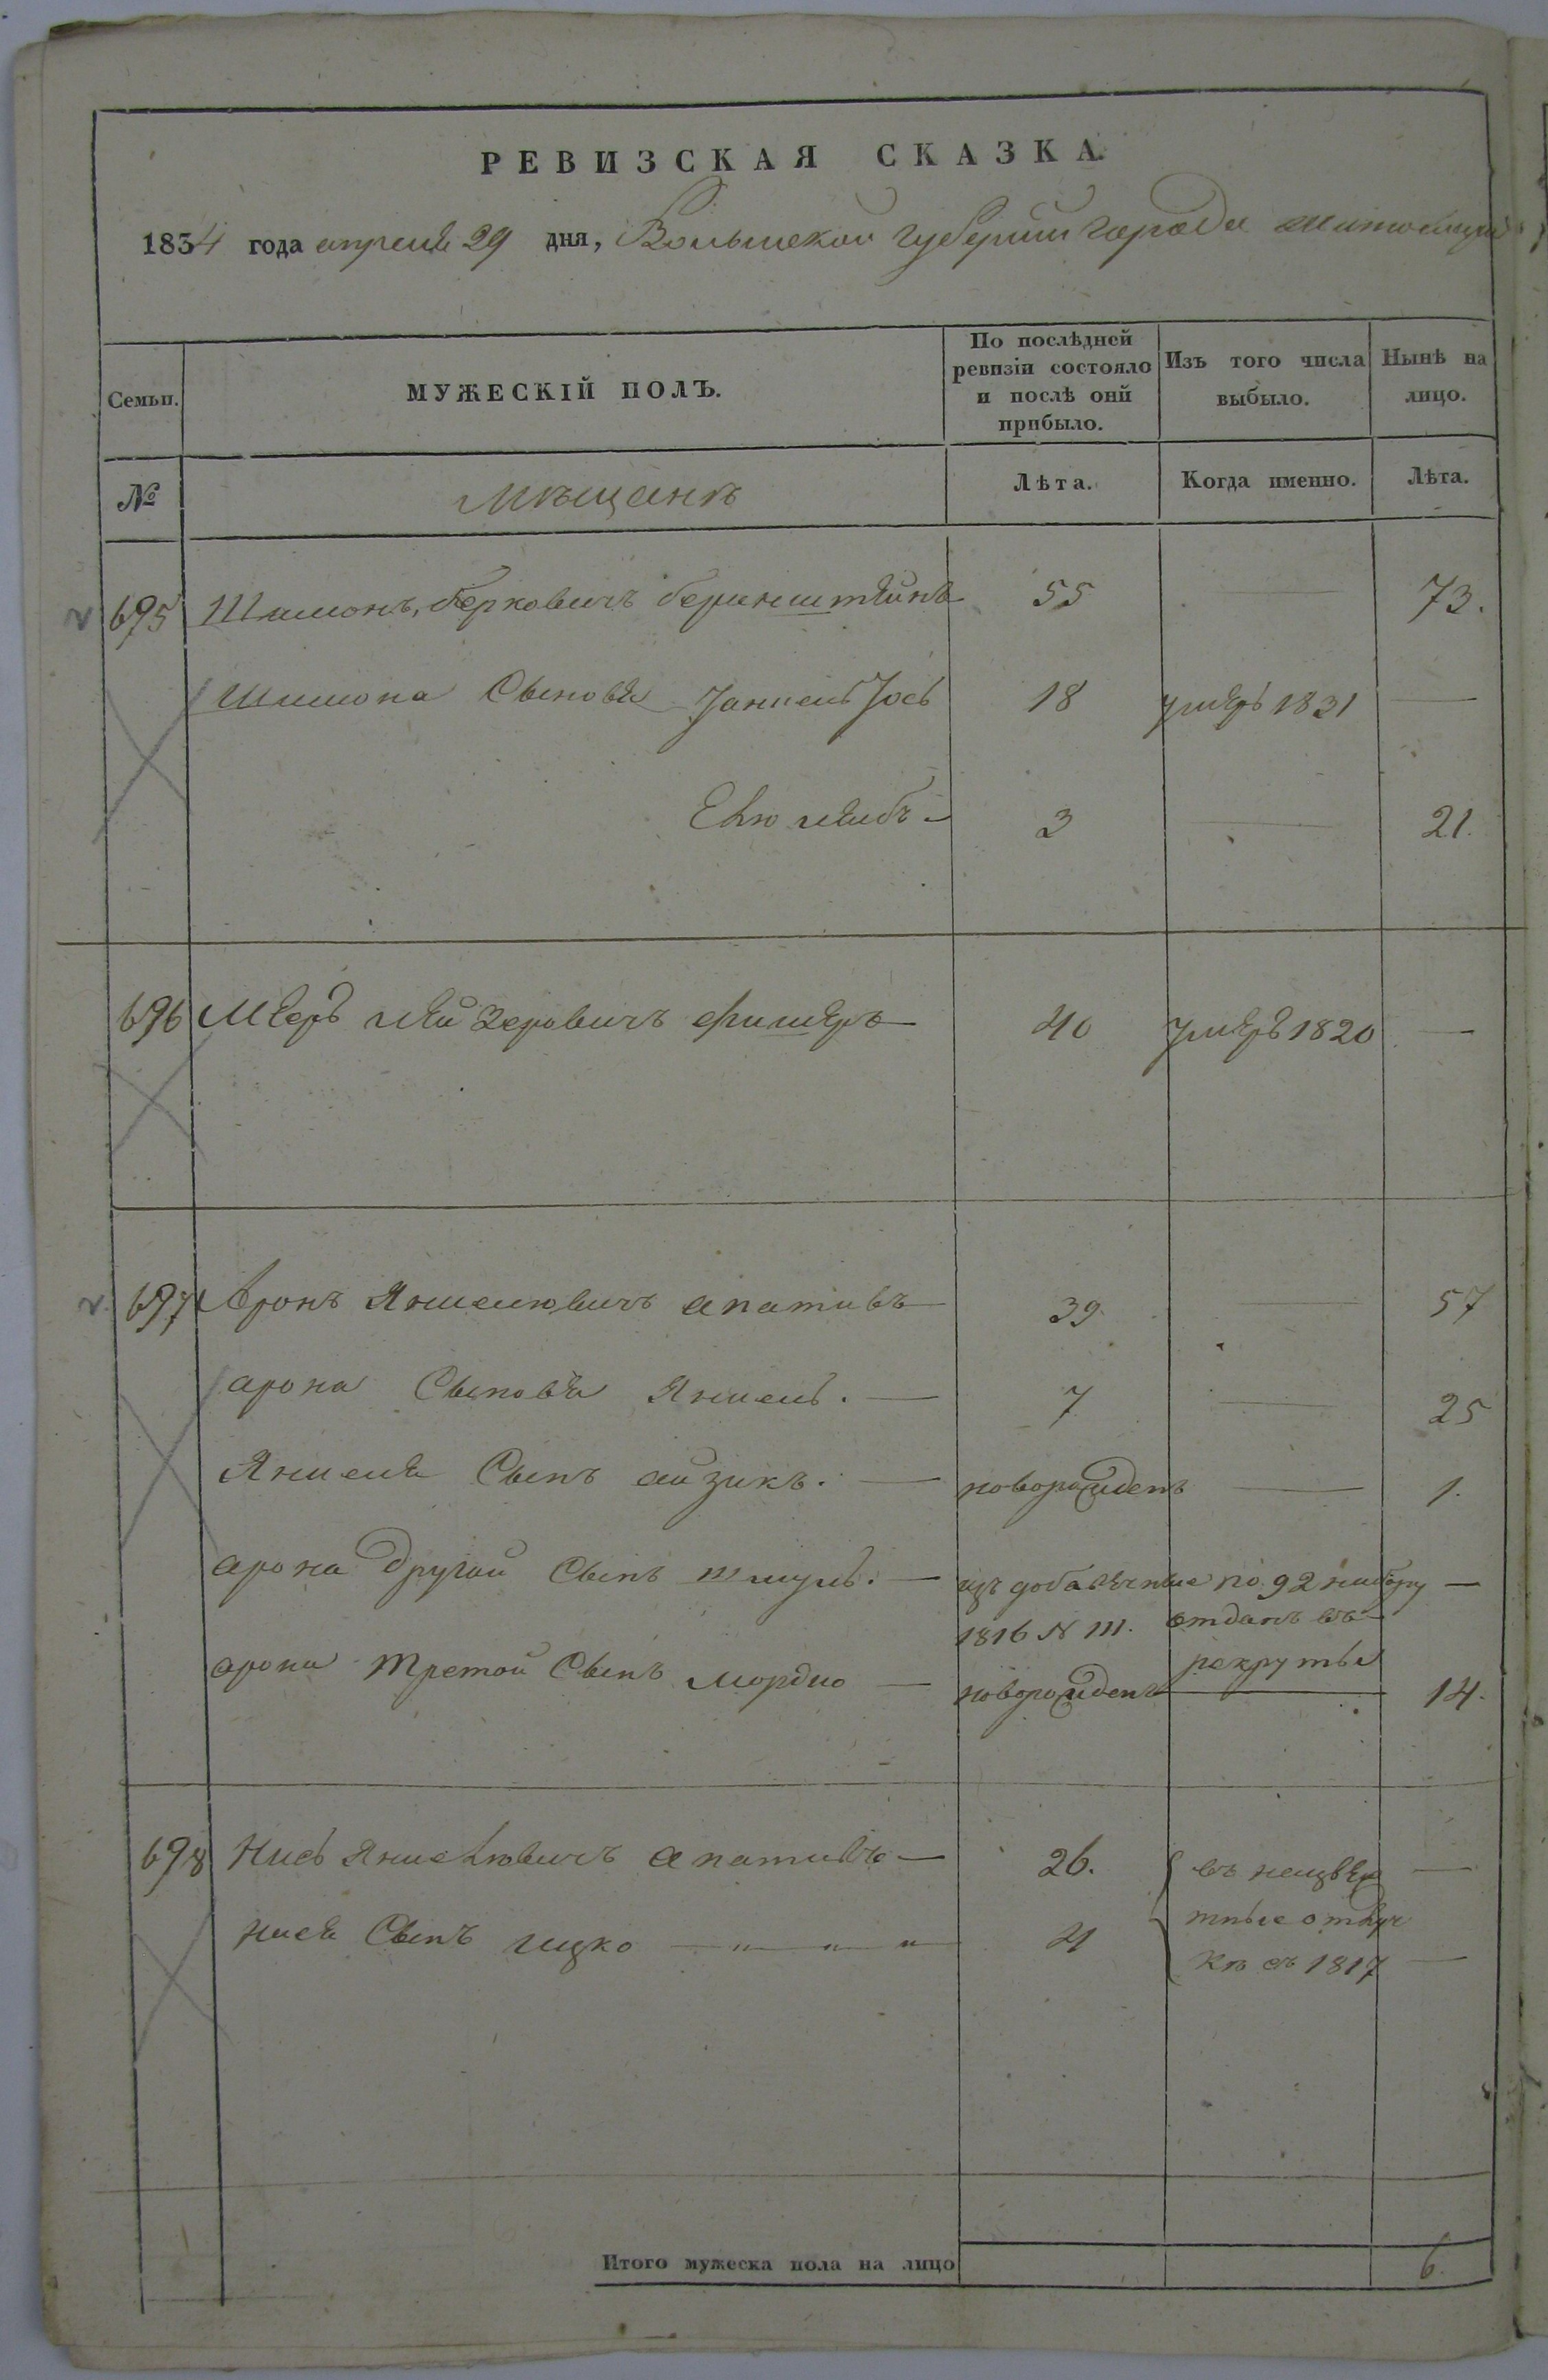 РЕВИЗСКАЯ СКАЗКА.
1834 года апреля 29 дня, Волынской губернии города Житомира
Семьи.
МУЖЕСКІЙ ПОЛЪ.
По послѣдней ревизіи состояло и послѣ оній прибыло.
Изъ того числа выбыло.
Нынѣ на лицо.
№
Мѣщанѣ
Лѣта.
Когда именно.
Лѣта.
695 Шимонъ, берковичъ беринштейнъ 55 — 73.
Шимона Сыновья Янкель Іось 18 умеръ 1831 —
3 — 21.
696 Мееръ лейзеровичъ фишеръ 40 умеръ 1820 —
697 Аронъ Яншелювичъ апативъ 39 — 57
арона Сыновья Яншель. — 7 — 25
Яншеля Сынъ айзикъ. — новорожденъ — 1.
арона другой Сынъ шмуль. — изъ добавочные по 92 набору —
1816 N 111. отданъ въ
рекруты
арона третой Сынъ мордко — новорожденъ — 14.
698 Нись Яншелювичъ апативъ — 26. въ неизвес —
тные отлуч
нися Сынъ ицко — " " " 4 кѣ съ 1817 —
Итого мужеска пола на лицо 6.